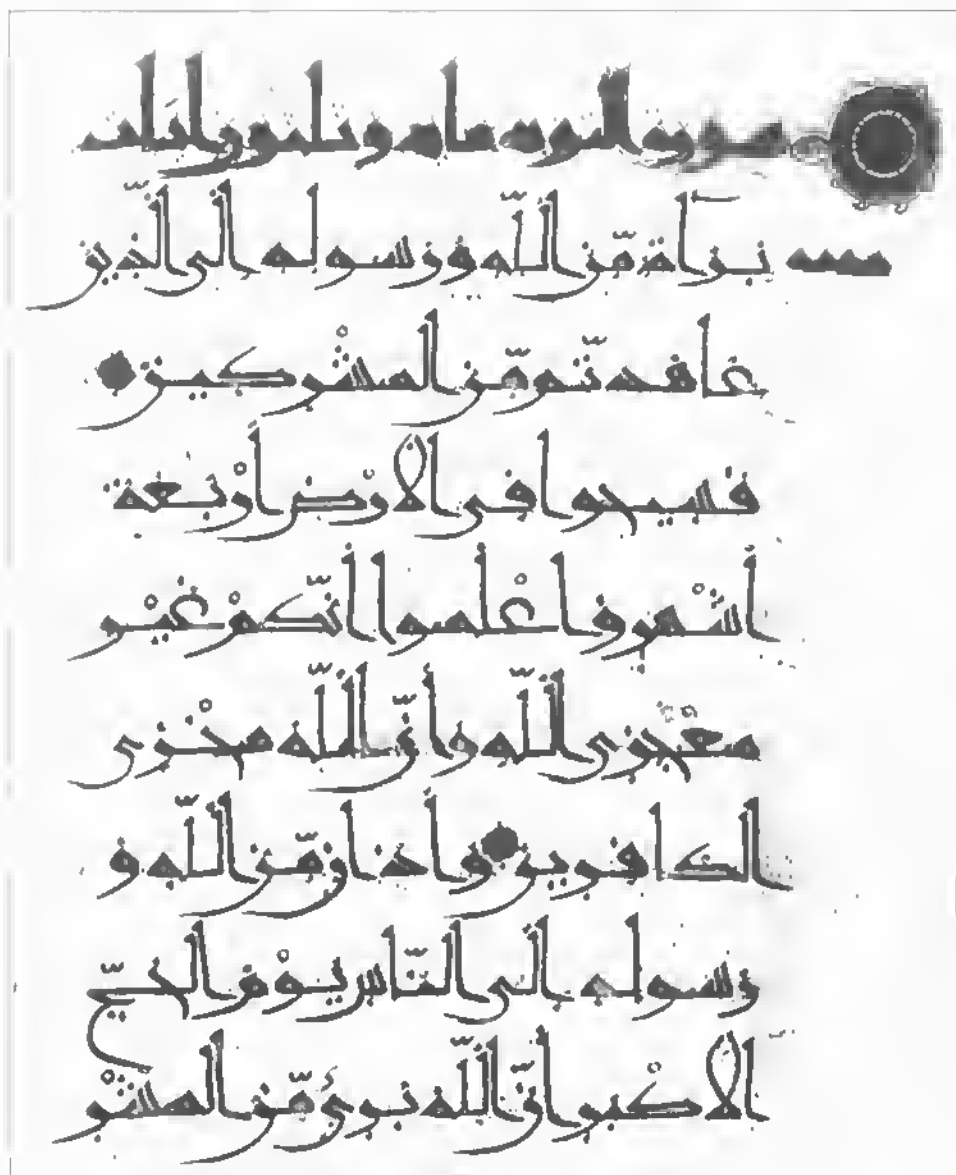 سورة التوبة مائة وثلثون
بَرَآةٌ مِّنَ اللّٰهِ وَرَسُولِهِ إِلَى الَّذِينَ
عَاهَدتُّم مِّنَ الْمُشْرِكِينَ
فَسِيحُوا فِي الْأَرْضِ أَرْبَعَةَ
أَشْهُرٍ وَاعْلَمُوا أَنَّكُمْ غَيْرُ
مُعْجِزِي اللّٰهِ وَأَنَّ اللّٰهَ مُخْزِي
الْكَافِرِينَ وَأَذَانٌ مِّنَ اللّٰهِ وَ
رَسُولِهِ إِلَى النَّاسِ يَوْمَ الْحَجِّ
الْأَكْبَرِ أَنَّ اللّٰهَ بَرِيءٌ مِّنَ الْمُشْرِ